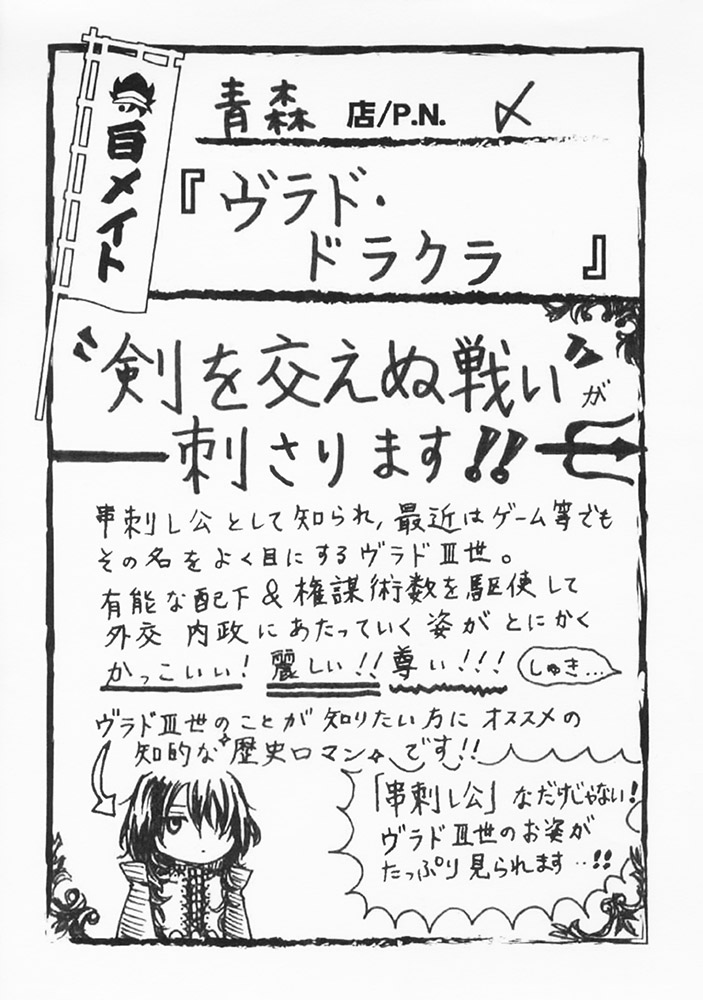 百メイト
青森 店/P.N. 〆
『ヴラド・
ドラクラ』
〝剣を交えぬ戦い〟が
刺さります!!
串刺し公として知られ,最近はゲーム等でも
その名をよく目にするヴラドⅢ世。
有能な配下&権謀術数を駆使して
外交 内政にあたっていく姿がとにかく
かっこいい! 麗しい!! 尊い!!! しゅき…
ヴラドⅢ世のことが知りたい方にオススメの
知的な歴史ロマンです!!
「串刺し公」なだけじゃない!
ヴラドⅢ世のお姿が
たっぷり見られます‥!!